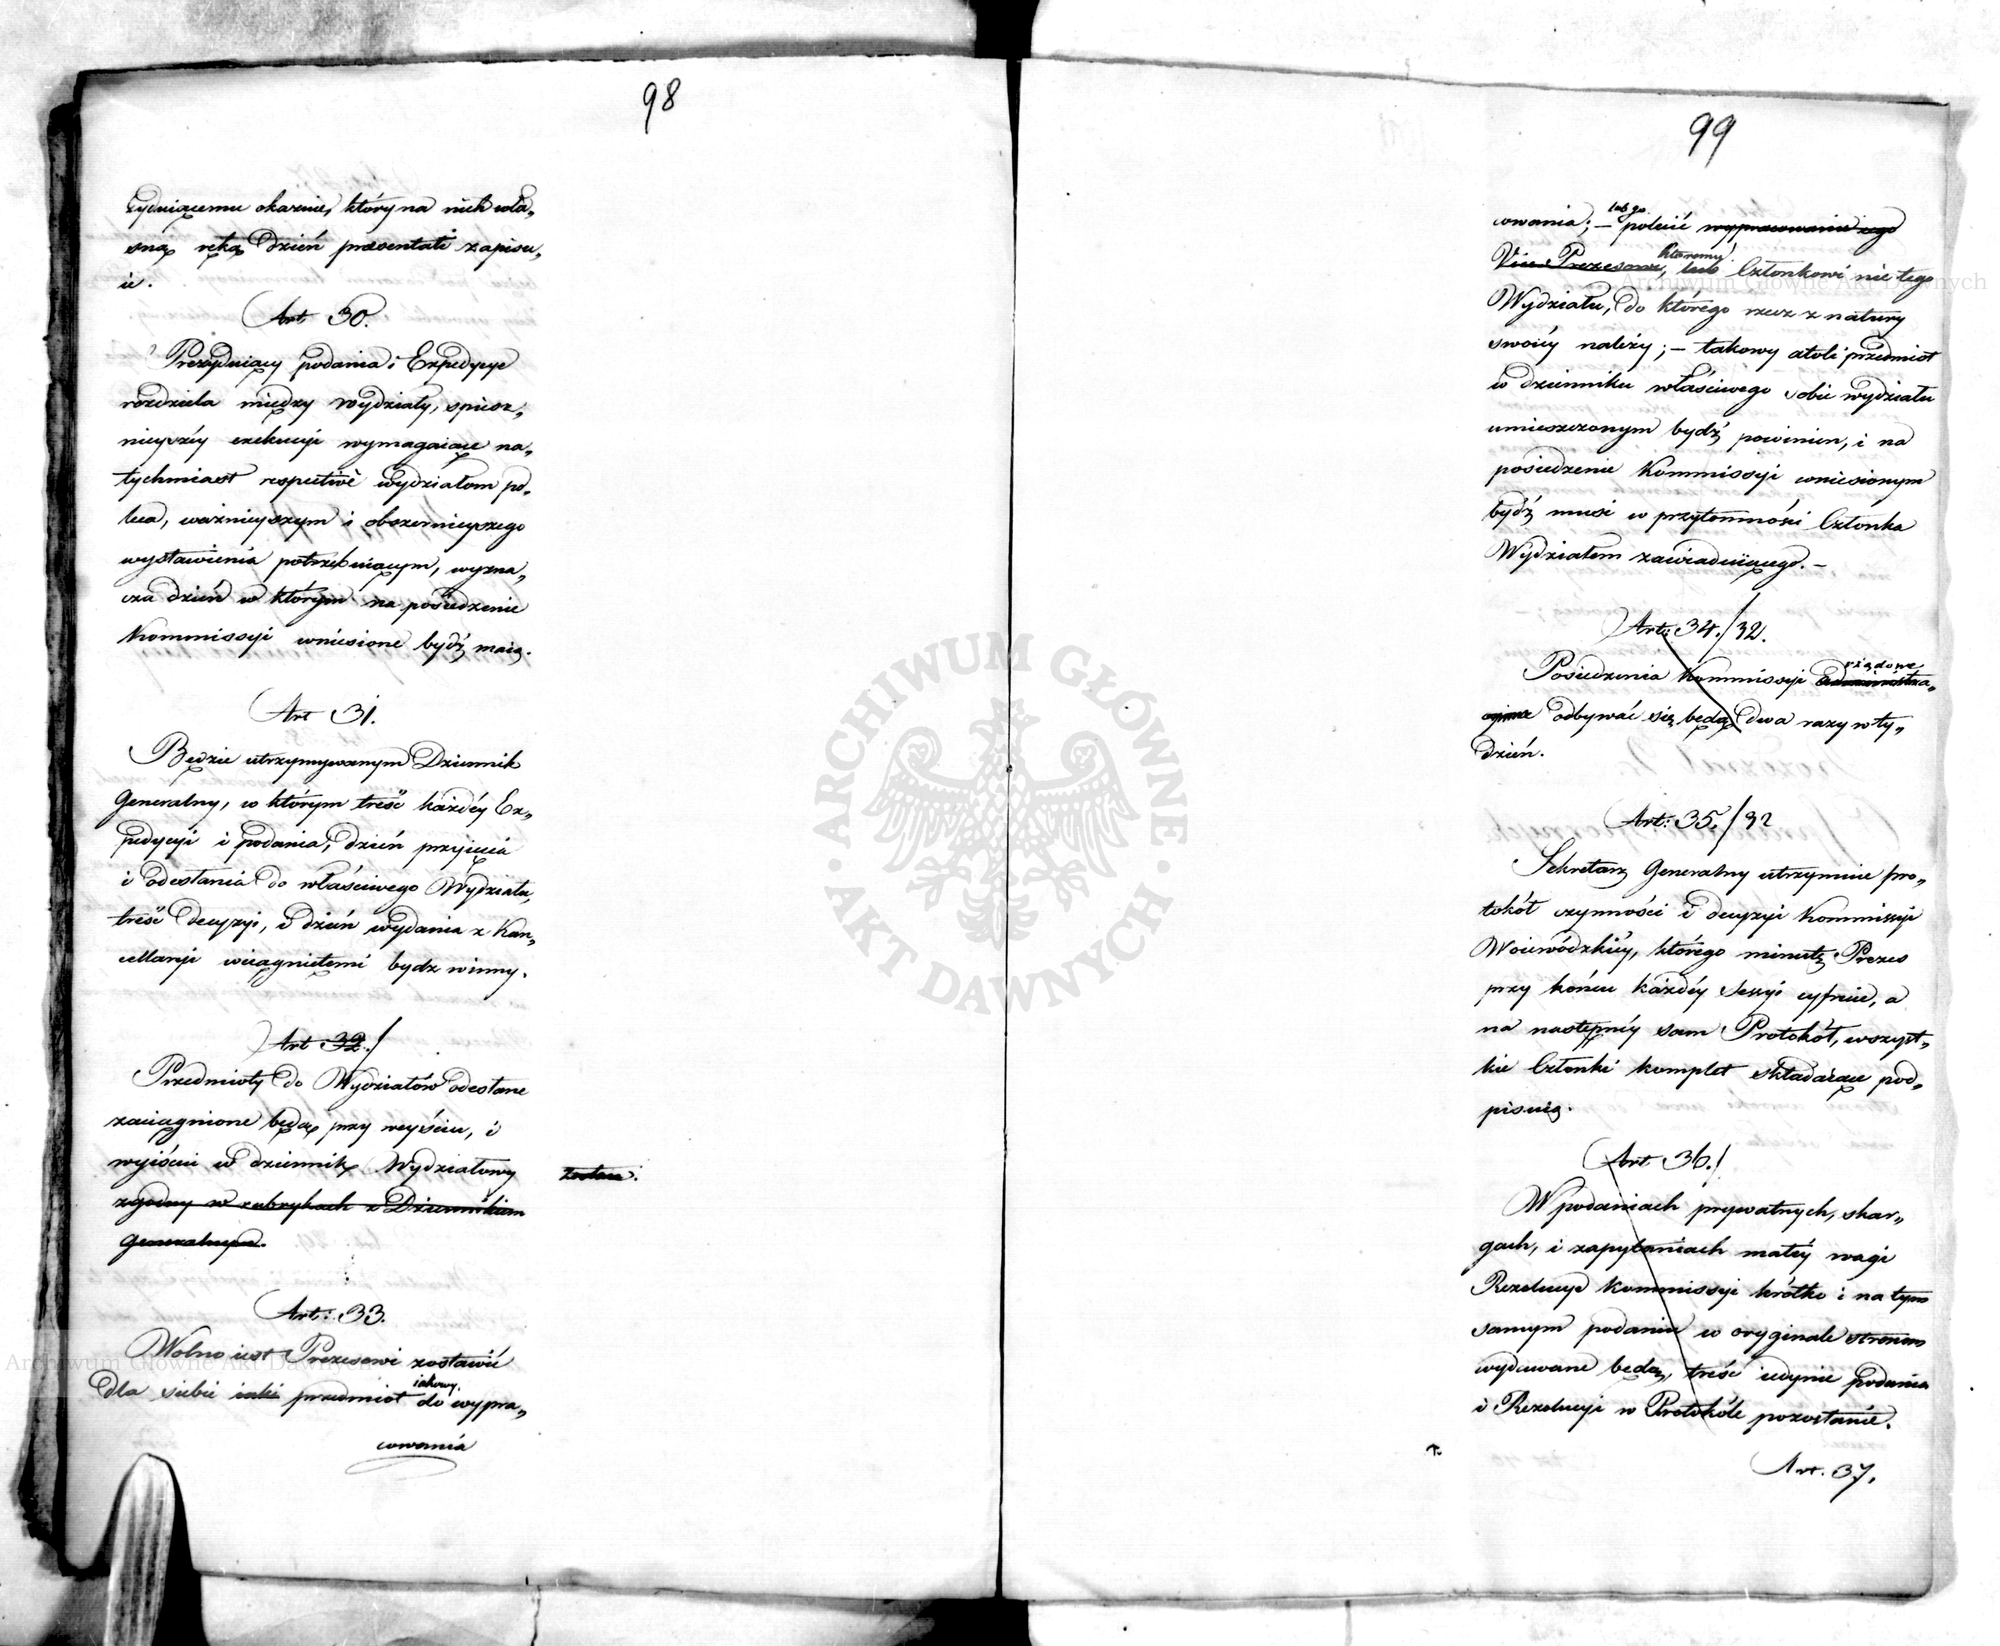 98
zyduiącemu okaznie, który na nich wła„
sną ręką Dzień praesentati zapisu„
ie.
Art 30.
Prezyduiący podania i Expedycye
rozdziela między wydziały, spiesz„
nieyszéy exekucyi wymagaiące na„
tychmiast respectivè wydziałom po„
leca, ważnieyszym i obszernieyszego
wystawienia potrzebuiącym, wyzna„
cza dzień w którym na posiedzenie
Kommissyi wniesione bydź maią.
Art 31.
Będzie utrzymywanym Dziennik
Generalny, w którym treść każdéy Ex„
pedycyi i podania, dzień przyięcia
i odesłania do właściwego Wydziału,
treść decyzyi, i dzień wydania z Kan„
cellaryi wciągniętemi bydz winny.
Art 32./
Przedmioty do Wydziałów odesłane
zaciągnione będą przy weyściu, i
wyiściu w dziennik Wydziałowy
zgodny w rubrykach z Dziennikiem
Generalnym.
Art: 33.
Wolno iest Prezesowi zostawić
dla siebie iaki przedmiot iakowy do wypra„
cowania
99
cowania; – lub go polecić wypracowanie iego
Vice-Prezesowi, lub któremu Członkowi nie tego
Wydziału, do którego rzecz z natury
swoiéy należy; – takowy atoli przedmiot
w dzienniku właściwego sobie wydziału
umieszczonym bydź powinien, i na
posiedzenie Kommissyi wniesionym
bydź musi w przytomności Członka
Wydziałem zawiaduiącego. –
Art: 34./32.
Posiedzenia Kommissyi rządowe Administra„
cyjne odbywać się będą dwa razy w ty„
dzień.
Art: 35./32
Sekretarz Generalny utrzymuie pro„
tokół czynności i decyzyi Kommissyi
Woiewódzkiéy, którego minutę Prezes
przy końcu każdéy Sessyi cyfruie, a
na następnéy sam Protokół, wszyst„
kie Członki komplet składaiące pod„
pisuią.
Art 36./
W podaniach prywatnych, skar„
gach, i zapytaniach małéy wagi
Rezolucye Kommissyi krótko i na tym
samym podaniu w oryginale stronom
wydawane będą, treść iedynie podania
i Rezolucyi w Protokóle pozostanie.
Art. 37.
ARCHIWUM GŁÓWNE · AKT DAWNYCH ·
Archiwum Główne Akt Dawnych
Archiwum Główne Akt Dawnych